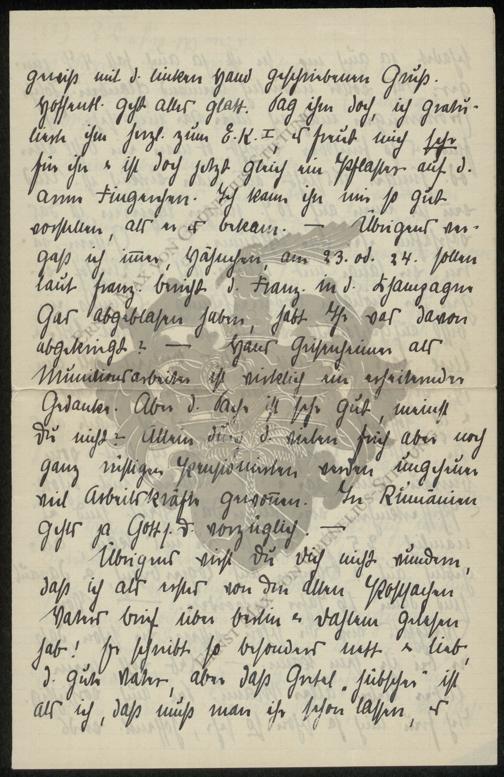 gewiss mit d. linken Hand geschriebenen Gruß.
Hoffentl. geht alles glatt. Sag ihm doch, ich gratu-
lierte ihm herzl. zum E.K.I, es freut mich sehr
für ihn u ist doch jetzt gleich ein Pflaster auf d.
arme Fingerchen. Ich kann ihn mir so gut
vorstellen, als er es bekam. — Übrigens ver-
gaß ich immer, Hähnchen, am 23. od. 24. sollen
laut franz. Bericht d. Franz. in d. Champagne
Gas abgeblasen haben, habt Ihr was davon
abgekriegt? — Hans als
Munitionsarbeiter ist wirklich ein erheiternder
Gedanke. Aber d. Sache ist sehr gut, meinst
Du nicht? Allein durch d. vielen sich aber noch
ganz rüstigen Pensionierten werden ungeheuer
viel Arbeitskräfte gewonnen. In Rumänien
gehts ja Gott s. D. vorzüglich —
Übrigens wirst Du Dich nicht wundern,
daß ich als erstes von den allen Postsachen
Vaters Brief über Berlin u Dahlem gelesen
hab! Er schreibt so besonders nett u lieb,
d. gute Vater, aber daß Gretel "hübscher" ist
als ich, daß muß man ihr schon lassen, es
ERNST MAX VON